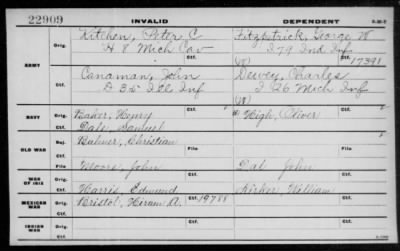 22909 INVALID DEPENDENT
Kitchen, Peter C Fitzpatrick, George W
Orig. H 8 Mich Cav I 79 Ind Inf
Ctf. Ctf. 17391
ARMY
Canaman, John Dewey, Charles
Ctf. D 35 Ill Inf I 26 Mich Inf
NAVY Orig. Baker, Henry High, Oliver
Ctf. Dale, Samuel
OLD WAR Balmer, Christian
File File
Moore, John Dal John
WAR OF 1812 Harris, Edmund William
MEXICAN WAR Orig. Bristol, Hiram A. Ctf. 19788 Ctf.
INDIAN WAR Orig. Ctf. Ctf.